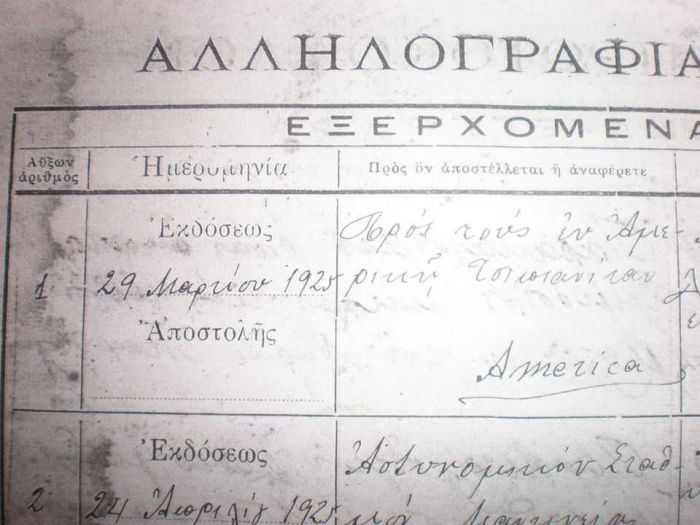 ΑΛΛΗΛΟΓΡΑΦΙΑ
ΕΞΕΡΧΟΜΕΝΑ
Αὔξων
ἀριθμὸς
Ἡμερομηνία
Πρὸς ὃν ἀποστέλλεται ἢ ἀναφέρετε
1
Ἐκδόσεως
29 Μαρτίου 1925
Ἀποστολῆς
Πρός τούς ἐν Ἀμε-
ρικῇ
America
2
Ἐκδόσεως
24 Ἀπριλίου 1925
Ἀστυνομικόν Σταθ-
μόν